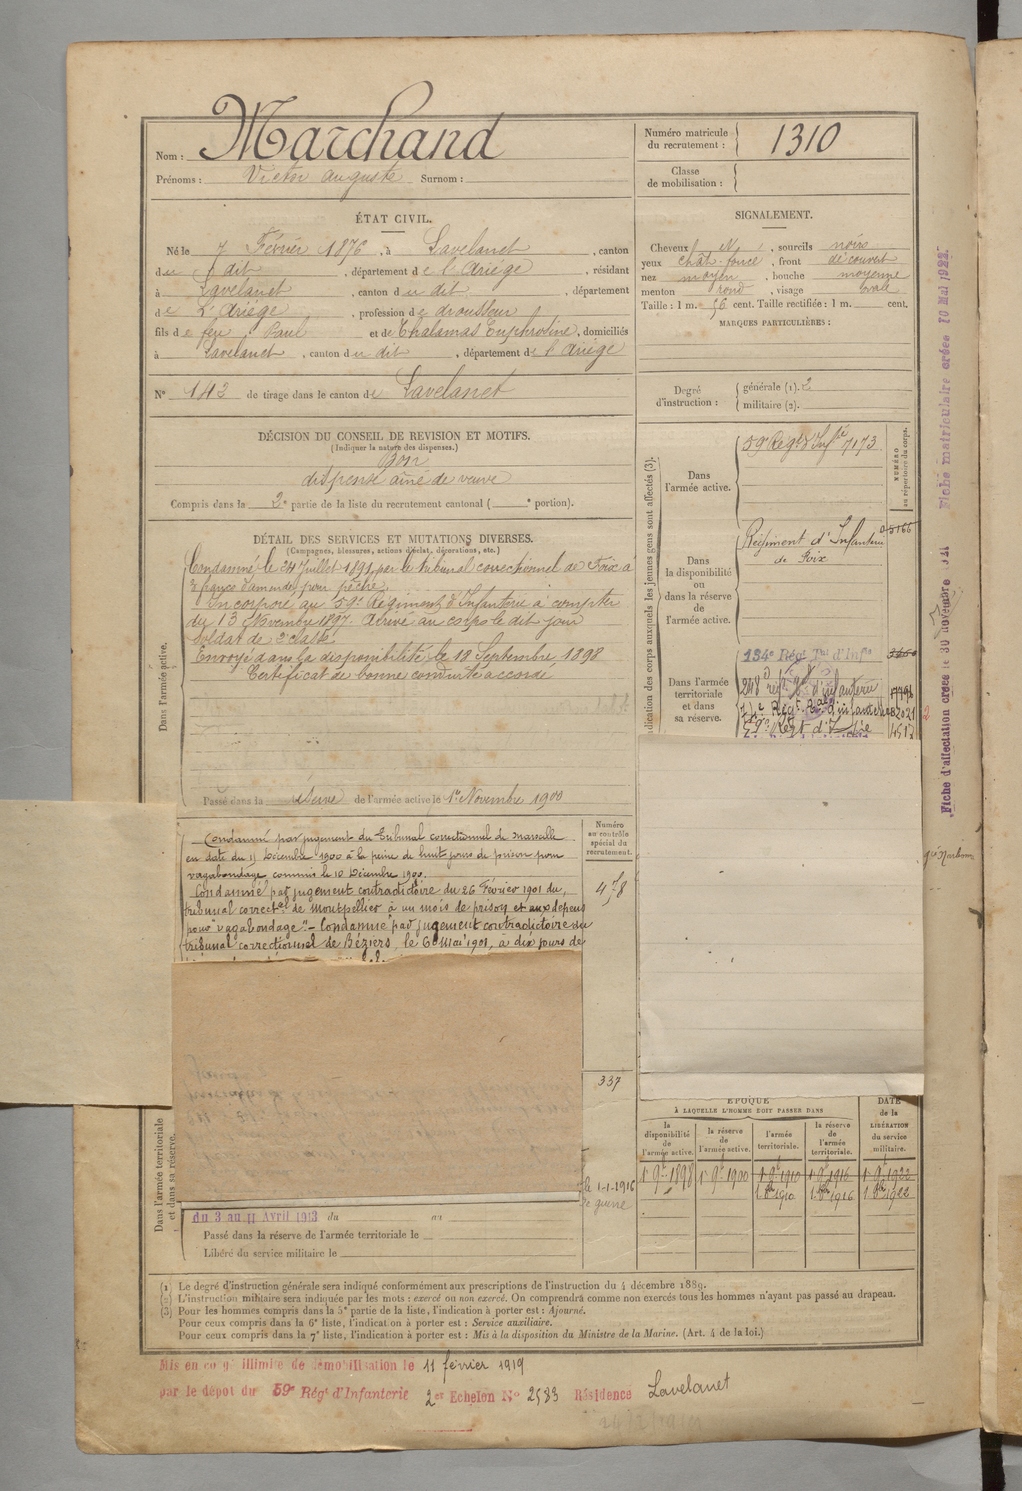 Nom : Marchand
Prénoms : Victor Auguste Surnom :
Numéro matricule du recrutement : 1310
Classe de mobilisation :
ÉTAT CIVIL.
Né le 7 Février 1876, à Lavelanet, canton
du dit, département de l'Ariège, résidant
à Lavelanet, canton du dit, département
de L'Ariège, profession de drousseur
fils de feu Paul et de Thalamas Euphrosine, domiciliés
à Lavelanet, canton du dit, département de l'Ariège
N° 143 de tirage dans le canton de Lavelanet
SIGNALEMENT.
Cheveux N, sourcils noirs
yeux chât. foncé, front découvert
nez moyen, bouche moyenne
menton rond, visage ovale
Taille : 1 m. 56 cent. Taille rectifiée : 1 m. cent.
MARQUES PARTICULIÈRES :
Degré d'instruction : générale (1). 2
militaire (2).
DÉCISION DU CONSEIL DE REVISION ET MOTIFS.
(Indiquer la nature des dispenses.)
Bon
dispensé aîné de veuve
Compris dans la 2e partie de la liste du recrutement cantonal ( e portion).
DÉTAIL DES SERVICES ET MUTATIONS DIVERSES.
(Campagnes, blessures, actions d'éclat, décorations, etc.)
Condamné le 24 Juillet 1891 par le tribunal correctionnel de Foix à
francs d'amende pour pêche.
Incorporé au 59e Régiment d'Infanterie à compter
du 13 Novembre 1897. Arrivé au corps le dit jour
Soldat de 2e classe
Envoyé dans la disponibilité le 18 Septembre 1898
Certificat de bonne conduite accordé
Passé dans la réserve de l'armée active le 1er Novembre 1900
Dans l'armée active.
Condamné par jugement du Tribunal correctionnel de Marseille
en date du 11 Décembre 1900 à la peine de huit jours de prison pour
vagabondage commis le 10 Décembre 1900.
Condamné par jugement contradictoire du 26 Février 1901 du
tribunal correctel de Montpellier à un mois de prison et aux dépens
pour "vagabondage". - Condamné par jugement contradictoire du
tribunal correctionnel de Béziers, le 6 Mai 1901, à dix jours de
Numéro
au contrôle
spécial du
recrutement.
337
1-1-1916
guerre
Dans l'armée territoriale
et dans sa réserve.
du 3 au 11 Avril 1913 du au
Passé dans la réserve de l'armée territoriale le
Libéré du service militaire le
Indication des corps auxquels les jeunes gens sont affectés (3).
NUMÉRO
au répertoire du corps.
Dans
l'armée active.
59e Régt d'Infie 7173
Dans
la disponibilité
ou
dans la réserve
de
l'armée active.
Régiment d'Infanterie 5166
de Foix
Dans l'armée
territoriale
et dans
sa réserve.
134e Régt Tal d'Infie
59e Régt d'Infie
Fiche d'affectation créée le 30 novembre Fiche matriculaire créée 10 Mai 1922.
Narbonne
ÉPOQUE
À LAQUELLE L'HOMME DOIT PASSER DANS
DATE
de la
LIBÉRATION
du service
militaire.
la
disponibilité
de
l'armée active.
la réserve
de
l'armée active.
l'armée
territoriale.
la réserve
de
l'armée
territoriale.
1er 9bre 1898 1er 9bre 1900 1er 9bre 1910 1er 9bre 1916 1er 9bre 1922
1. 8bre 1910 1. 8bre 1916 1. 8bre 1922
(1) Le degré d'instruction générale sera indiqué conformément aux prescriptions de l'instruction du 4 décembre 1889.
(2) L'instruction militaire sera indiquée par les mots : exercé ou non exercé. On comprendra comme non exercés tous les hommes n'ayant pas passé au drapeau.
(3) Pour les hommes compris dans la 5e partie de la liste, l'indication à porter est : Ajourné.
Pour ceux compris dans la 6e liste, l'indication à porter est : Service auxiliaire.
Pour ceux compris dans la 7e liste, l'indication à porter est : Mis à la disposition du Ministre de la Marine. (Art. 4 de la loi.)
Mis en congé illimité de démobilisation le 11 février 1919
par le dépôt du 59e Régt d'Infanterie 2e Echelon N° 2583 Résidence Lavelanet